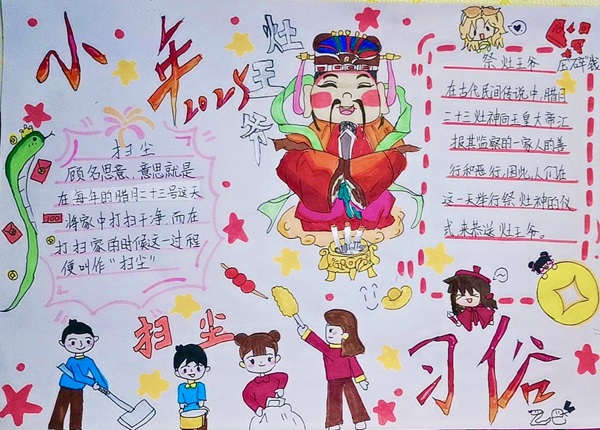 小年
2025
灶王爷
祭灶王爷
压岁钱
在古代民间传说中,腊月
二十三灶神向玉皇大帝汇
报其监察的一家人的善
行和恶行因此,人们在
这一天举行祭灶神的仪
式,来恭送灶王爷。
扫尘
顾名思意、意思就是
在每年的腊月二十三号这天
将家中打扫干净,而在
打扫家由时候这一过程
便叫作"扫尘"
100
扫尘
习俗